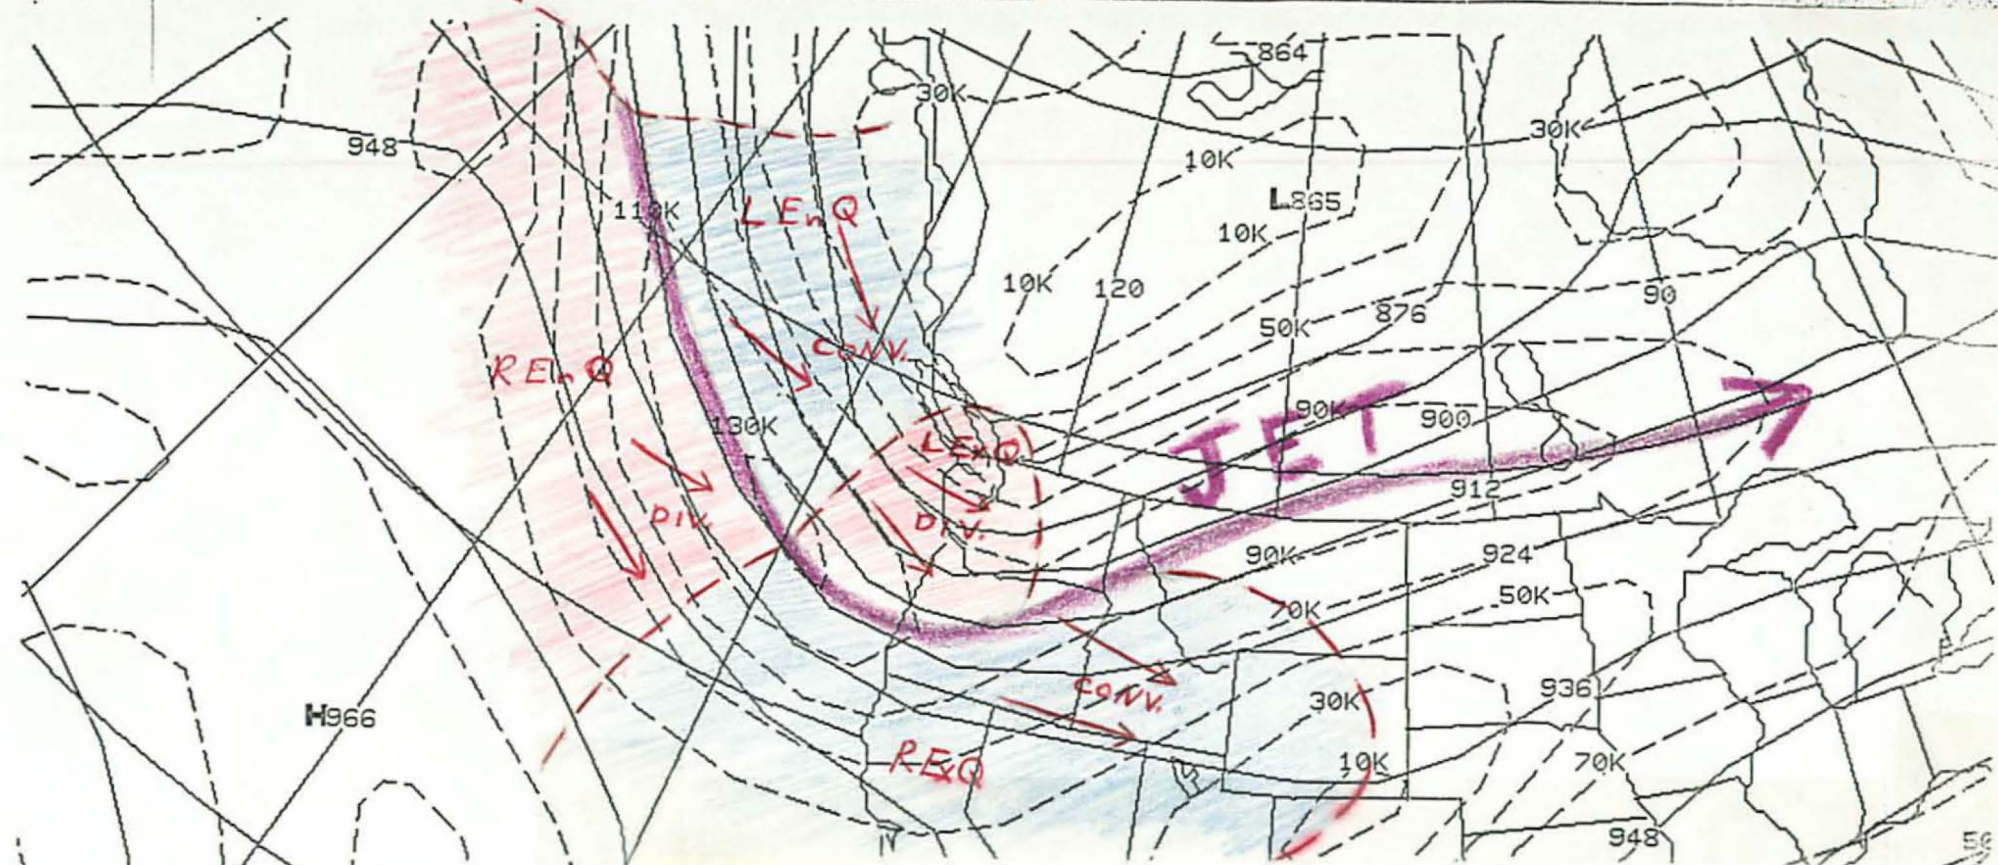 864
30K
30K
948
10K
L865
110K
LEnQ
10K
10K
120
90
876
50K
CONV.
REnQ
90K
900
130K
LExQ
JET
912
DIV.
DIV.
90K
924
50K
70K
CONV.
936
30K
H966
RExQ
10K
70K
948